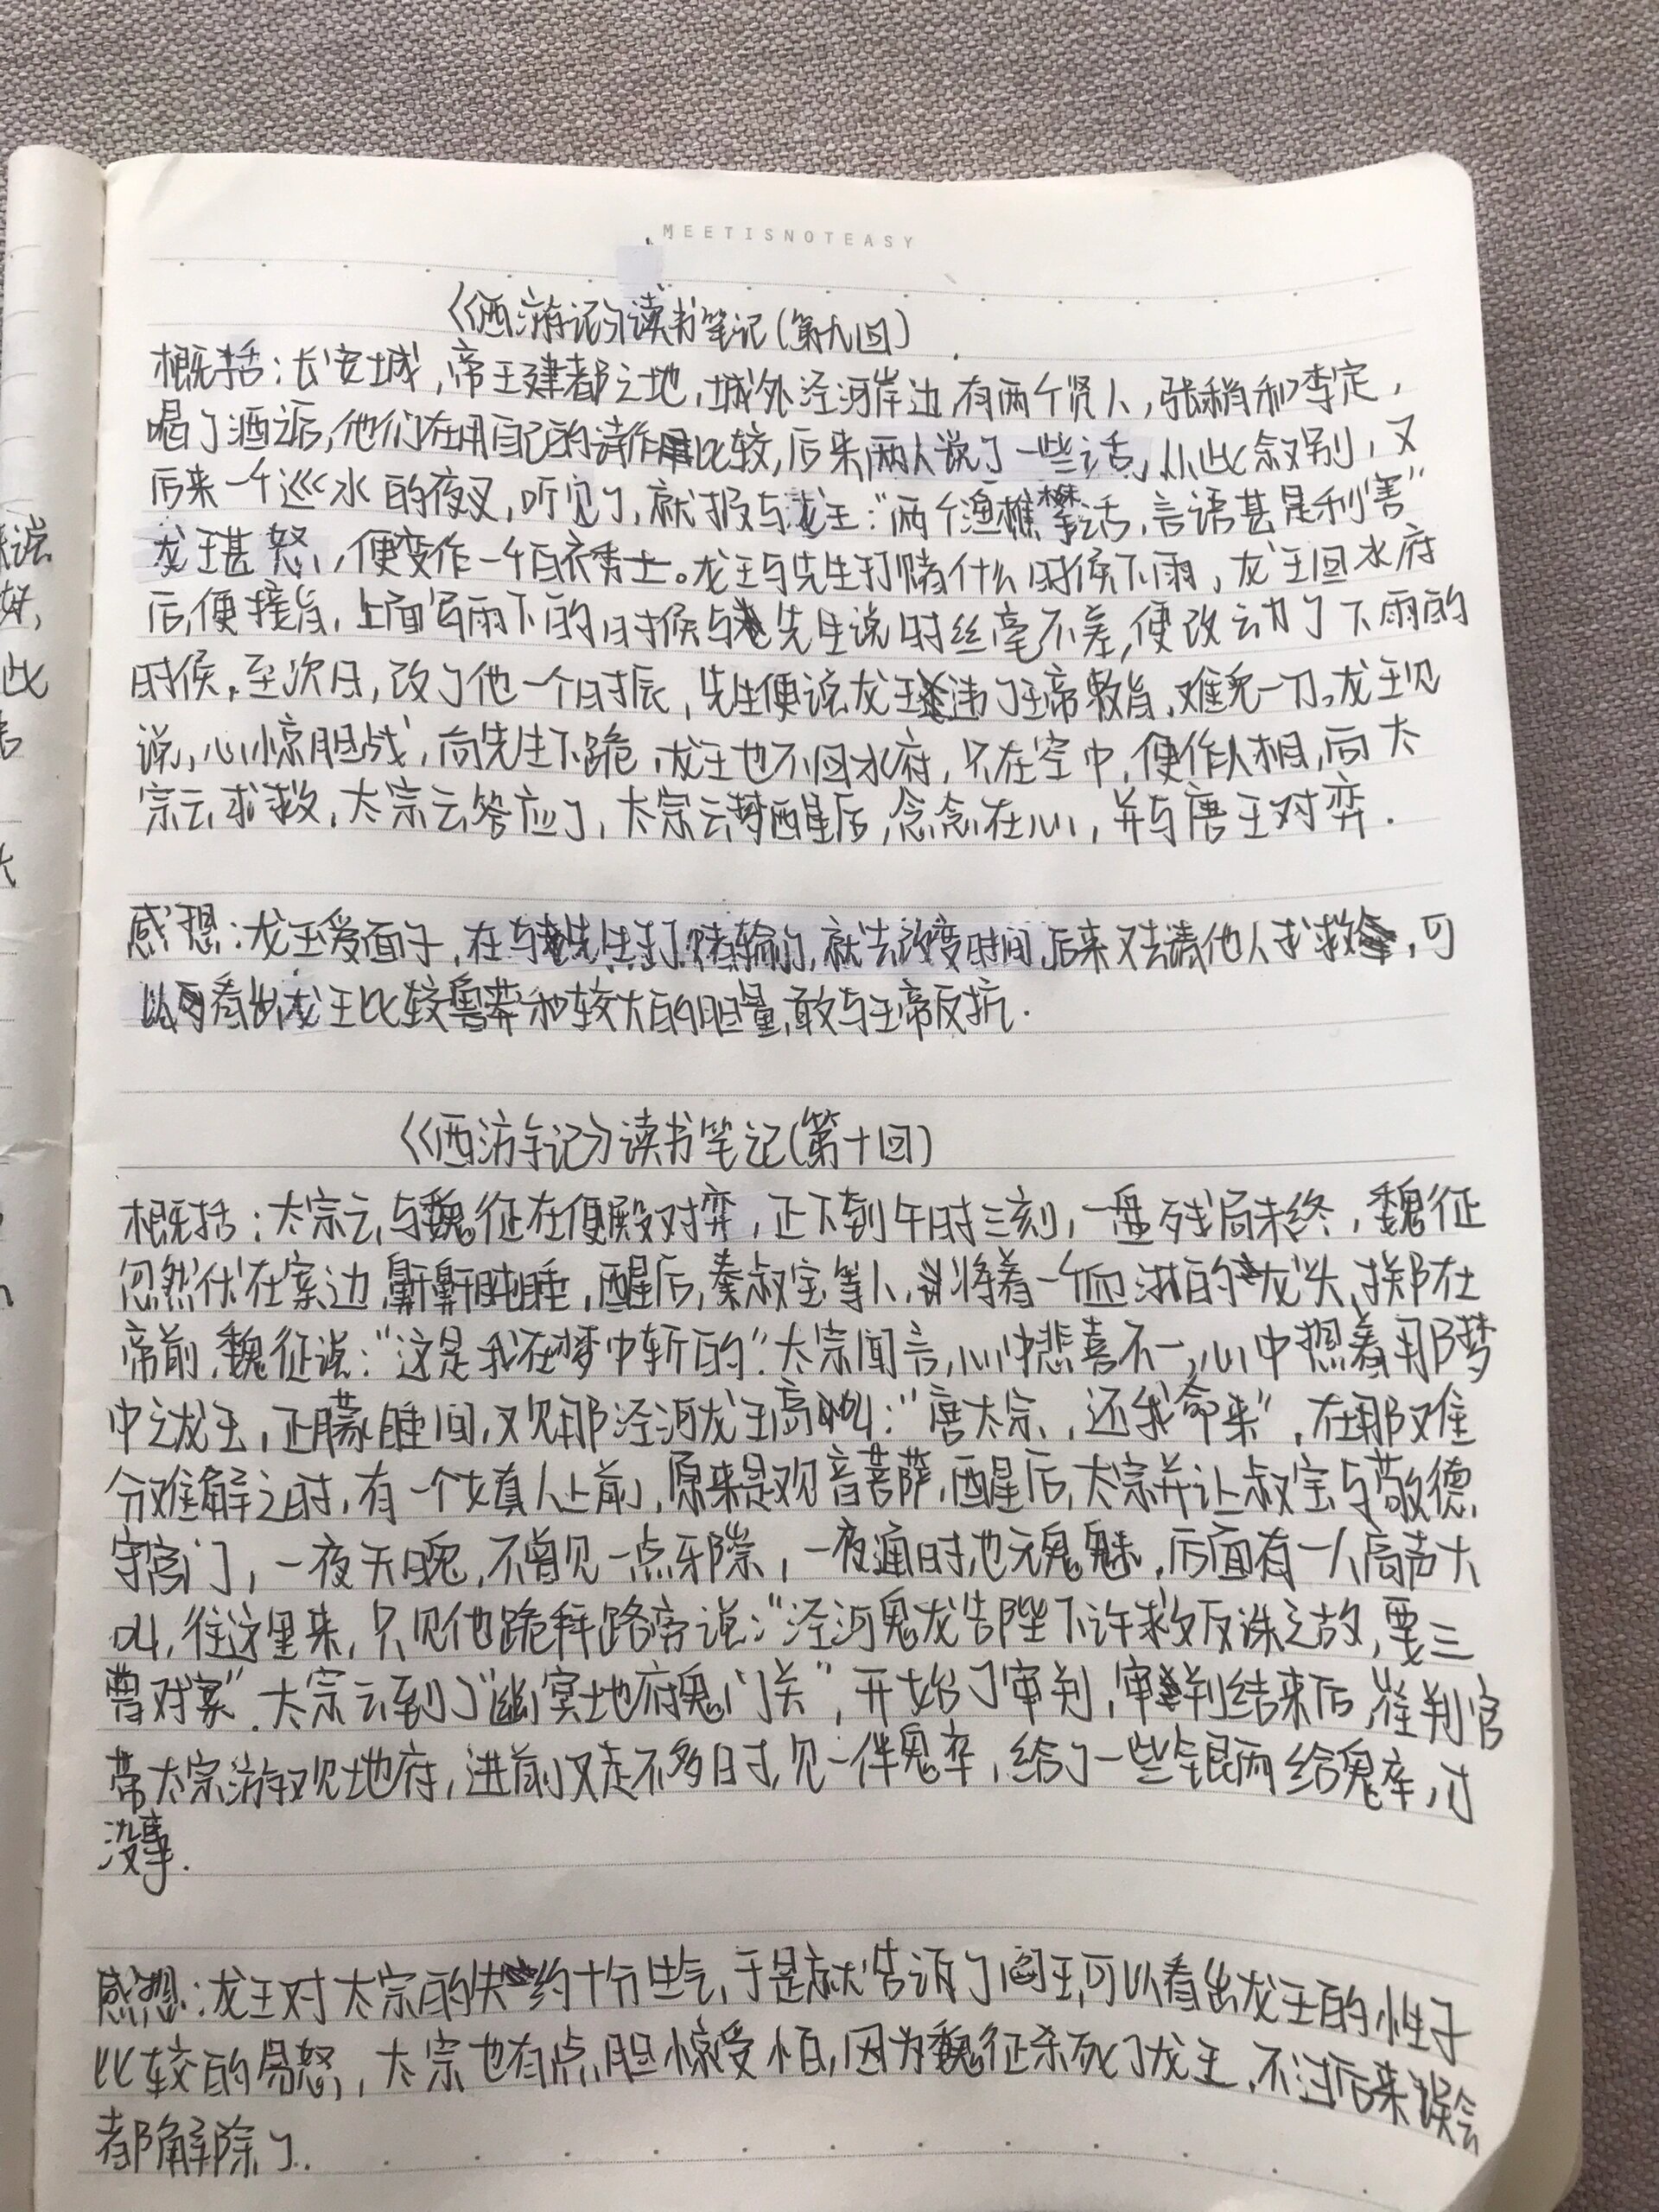 MEETISNOTEASY
《西游记》读书笔记(第九回)
概括:长安城,帝王建都之地,城外泾河岸边,有两个贤人,张稍和李定,
喝了酒后,他们在用自己的诗作比较,后来两人说了一些话,从此叙别,又
后来一个巡水的夜叉,听见了,就报与龙王:“两个渔樵攀话,言语甚是利害”
龙王甚怒,便变作一个白衣秀士。龙王与先生打赌什么时候下雨,龙王回水府
后,便接旨,上面写雨下的时候与先生说时丝毫不差,便改动了下雨的
时候,至次日,改了他一个时辰,先生便说龙王违了玉帝敕旨,难免一刀。龙王见
说,心惊胆战,向先生下跪,龙王也不回水府,只在空中,便作人相,向太
宗云求救,太宗云答应了,太宗云梦醒后,念念在心,并与唐王对弈.
感想:龙王爱面子,在与先生打赌输了,就去改变时间,后来又去请他人求救,可
以看出龙王比较鲁莽和较大的胆量,敢与玉帝反抗.
《西游记》读书笔记(第十回)
概括:太宗云与魏征在便殿对弈,正下到午时三刻,一盘残局未终,魏征
忽然伏在案边,鼾鼾盹睡,醒后,秦叔宝等人,将着一个血淋的龙头,掷在
帝前,魏征说:“这是我在梦中斩的.”太宗闻言,心中悲喜不一,心中想着那梦
中之龙王,正朦睡间,又见那泾河龙王高叫:“唐太宗,还我命来”,在那难
分难解之时,有一个女真人上前,原来是观音菩萨,醒后,太宗并让叔宝与敬德
守宫门,一夜天晚,不曾见一点邪祟,一夜通时,也无鬼魅,后面有一人高声大
叫,往这里来,只见他跪拜路旁说:“泾河鬼龙告陛下许救反诛之故,要三
曹对案”.太宗云到了“幽冥地府鬼门关”,开始了审判,审判结束后,崔判官
带太宗游观地府,进前又走不多时,见一伴鬼卒,给了一些银两给鬼卒,才
没事.
感想:龙王对太宗的失约十分生气,于是就告诉了阎王,可以看出龙王的性子
比较的易怒,太宗也有点胆惊受怕,因为魏征杀死了龙王,不过后来误会
都解除了.